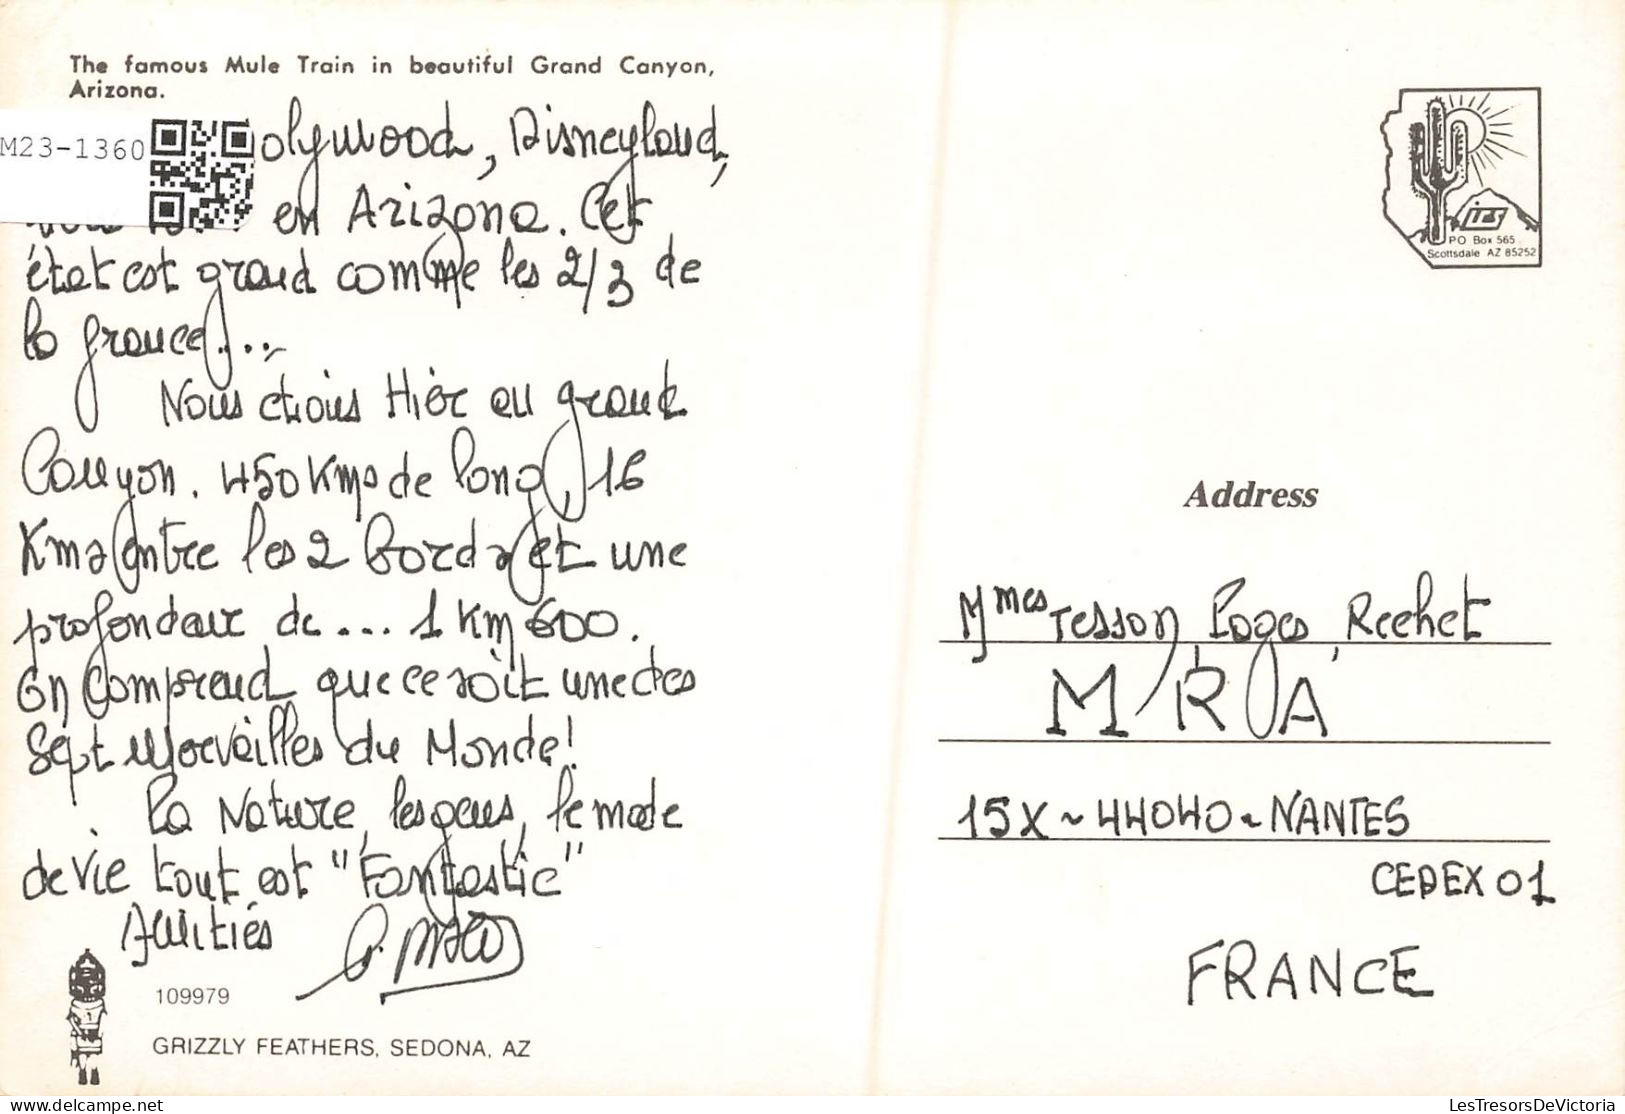 The famous Mule Train in beautiful Grand Canyon,
Arizona.
M23-1360
olywood, Disneyland,
en Arizona. Cet
état est grand comme les 2/3 de
la france...
Nous étions Hier au grand
Canyon. 450 Kms de long, 16
Kms entre les 2 bords et une
profondeur de... 1 Km 600.
On comprend que ce soit une des
Sept Merveilles du Monde!
La Nature, les gens, le mode
de vie tout est "Fantastic"
Amitiés
109979
GRIZZLY FEATHERS, SEDONA, AZ
irs
PO Box 565
Scottsdale AZ 85252
Address
Mmes Tesson, Pages, Rechet
M R A
15X ~ 44040 ~ NANTES
CEDEX 01
FRANCE
LesTresorsDeVictoria